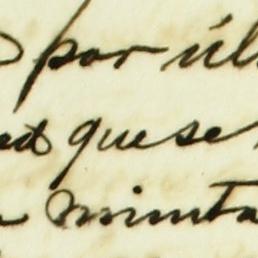 por úl
ed que se
minuta